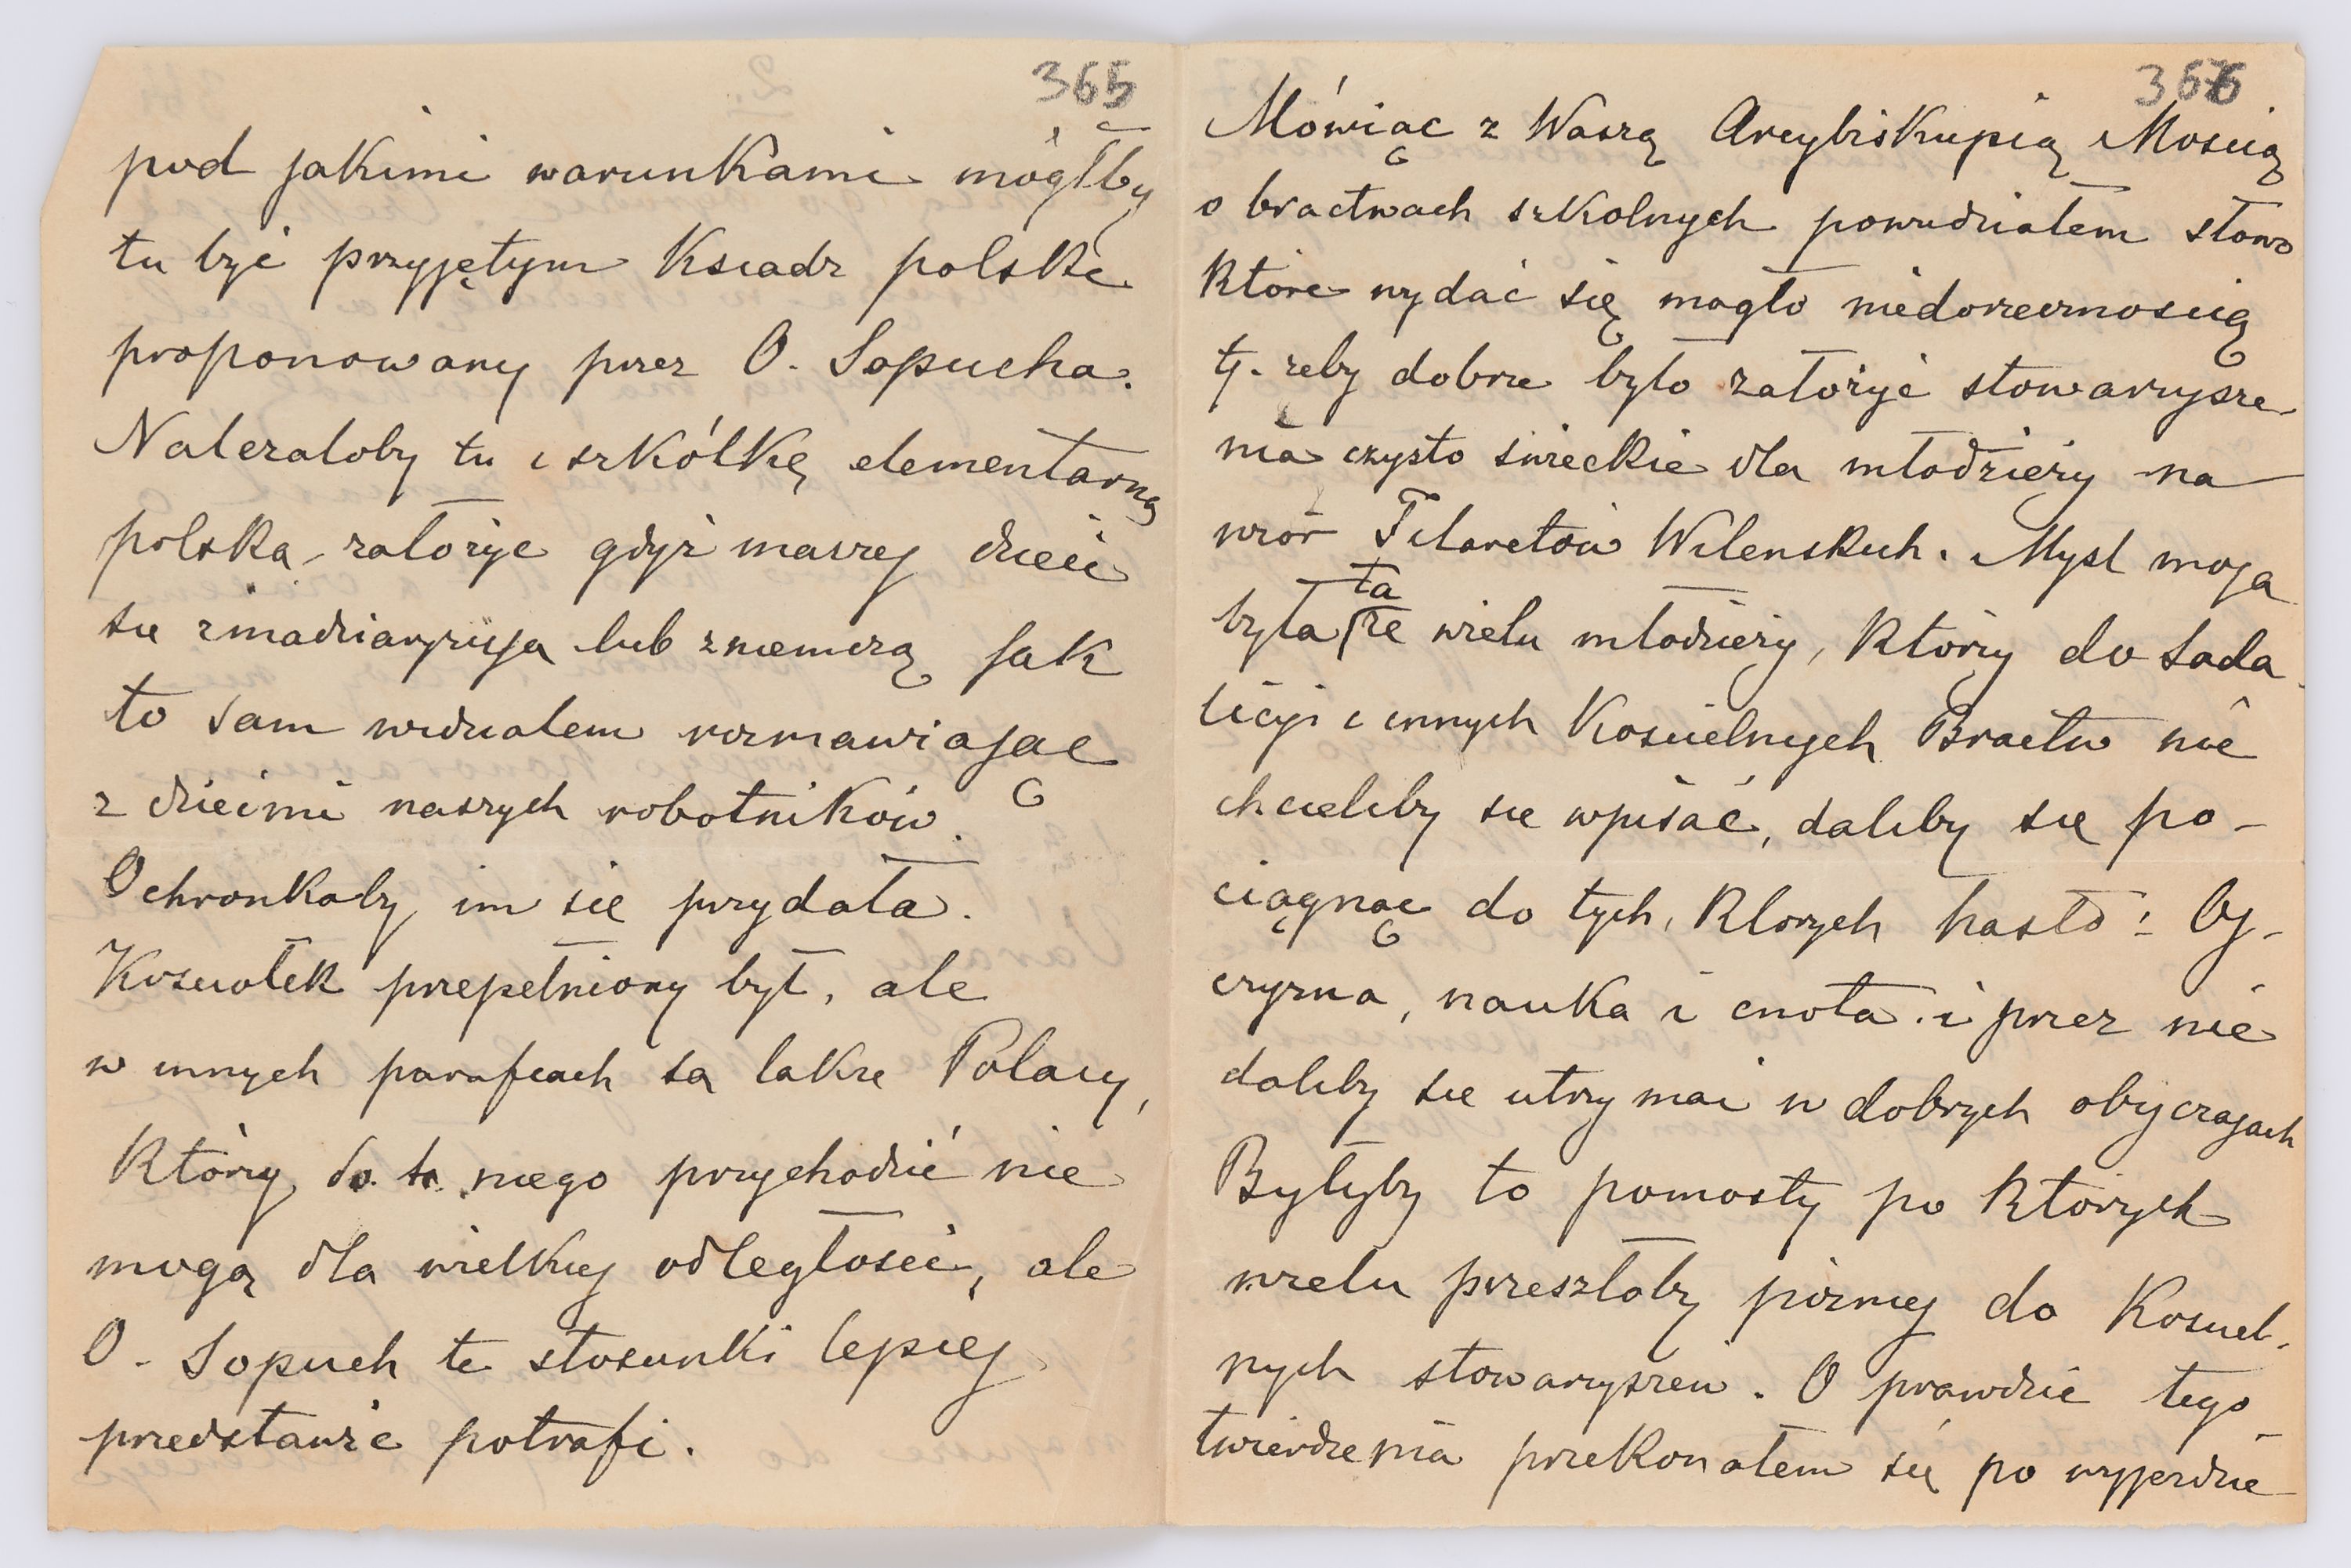 365
pod jakimi warunkami mógłby
tu być przyjętym Ksiadz polski
proponowany przez O. Sopucha.
Należałoby tu i szkółkę elementarną
polska założyc gdyż inaczej dzieci
sie zmadziaryzują lub zniemczą jak
to sam widziałem rozmawiając
z dziećmi naszych robotników.
Ochronkaby im sie przydała.
Kościołek przepełniony był, ale
w innych parafiach sa także Polacy,
Którzy do niego przychodzić nie
mogą dla wielkiej odległości, ale
O. Sopuch te stosunki lepiej
przedstawić potrafi.
366
Mówiąc z Waszą Arcybiskupią Mością
o bractwach szkolnych powiedziałem słowo
Które wydać się mogło niedorzecznością
tj. żeby dobrze było założyć stowarzysze
nia czysto świeckie dla młodzieży na
wzór Filaretów Wileńskich. Myśl moja
była ta że wielu młodzieży, Którzy do Soda
licyi i innych Kościelnych Bractw nie
chcieliby sie wpisać, daliby się po-
ciągnąć do tych, Których hasło: Oj-
czyzna, nauka i cnota i przez nie
daliby sie utrzymać w dobrych obyczajach
Byłyby to pomosty po Których
wielu przeszłoby pózniej do Kościel-
nych stowarzyszeń. O prawdzie tego
twierdzenia przekonałem się po wyjeździe